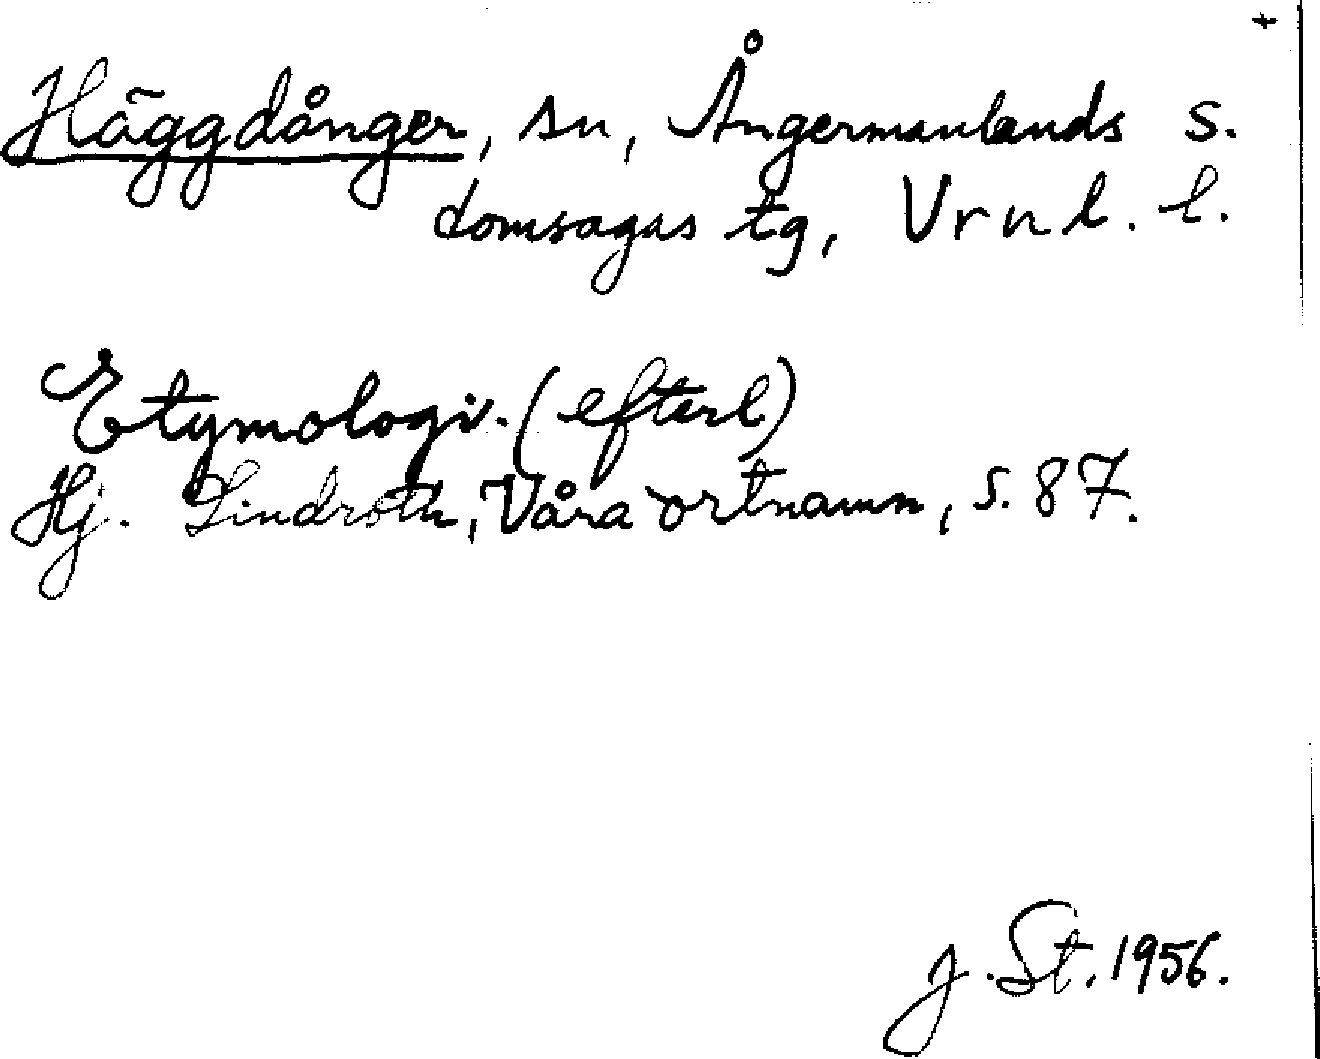 +
Häggdånger, sn, Ångermanlands s.
domsagas tg, Vrnl. l.
Etymologi. (efterl)
Hj. Lindroth, Våra ortnamn, s. 87.
J. St. 1956.